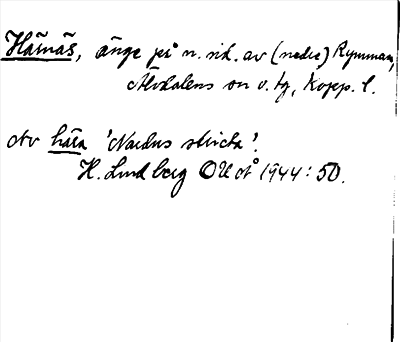 Härnäs, änge på n. sid. av (nedre) Rymman,
Älvdalens sn o. tg, Kopp. l.
Av hära 'Nardus stricta'.
H. Lindberg OUÅ 1944: 50.